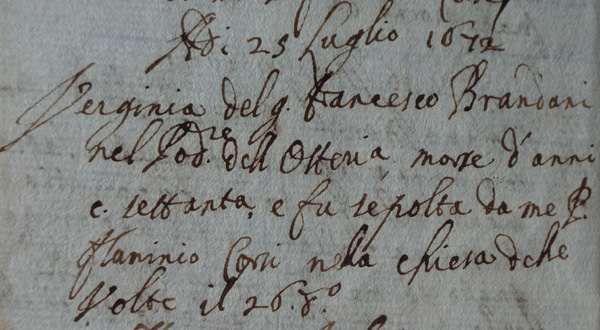 Adi 25 Luglio 1672
Verginia del q. Francesco Brandani
nel Pod.re dell Osteria, morse d'anni
c. settanta, e fu sepolta da me P.
Flaminio Corsi nella chiesa delle
Volte il 26. d.o